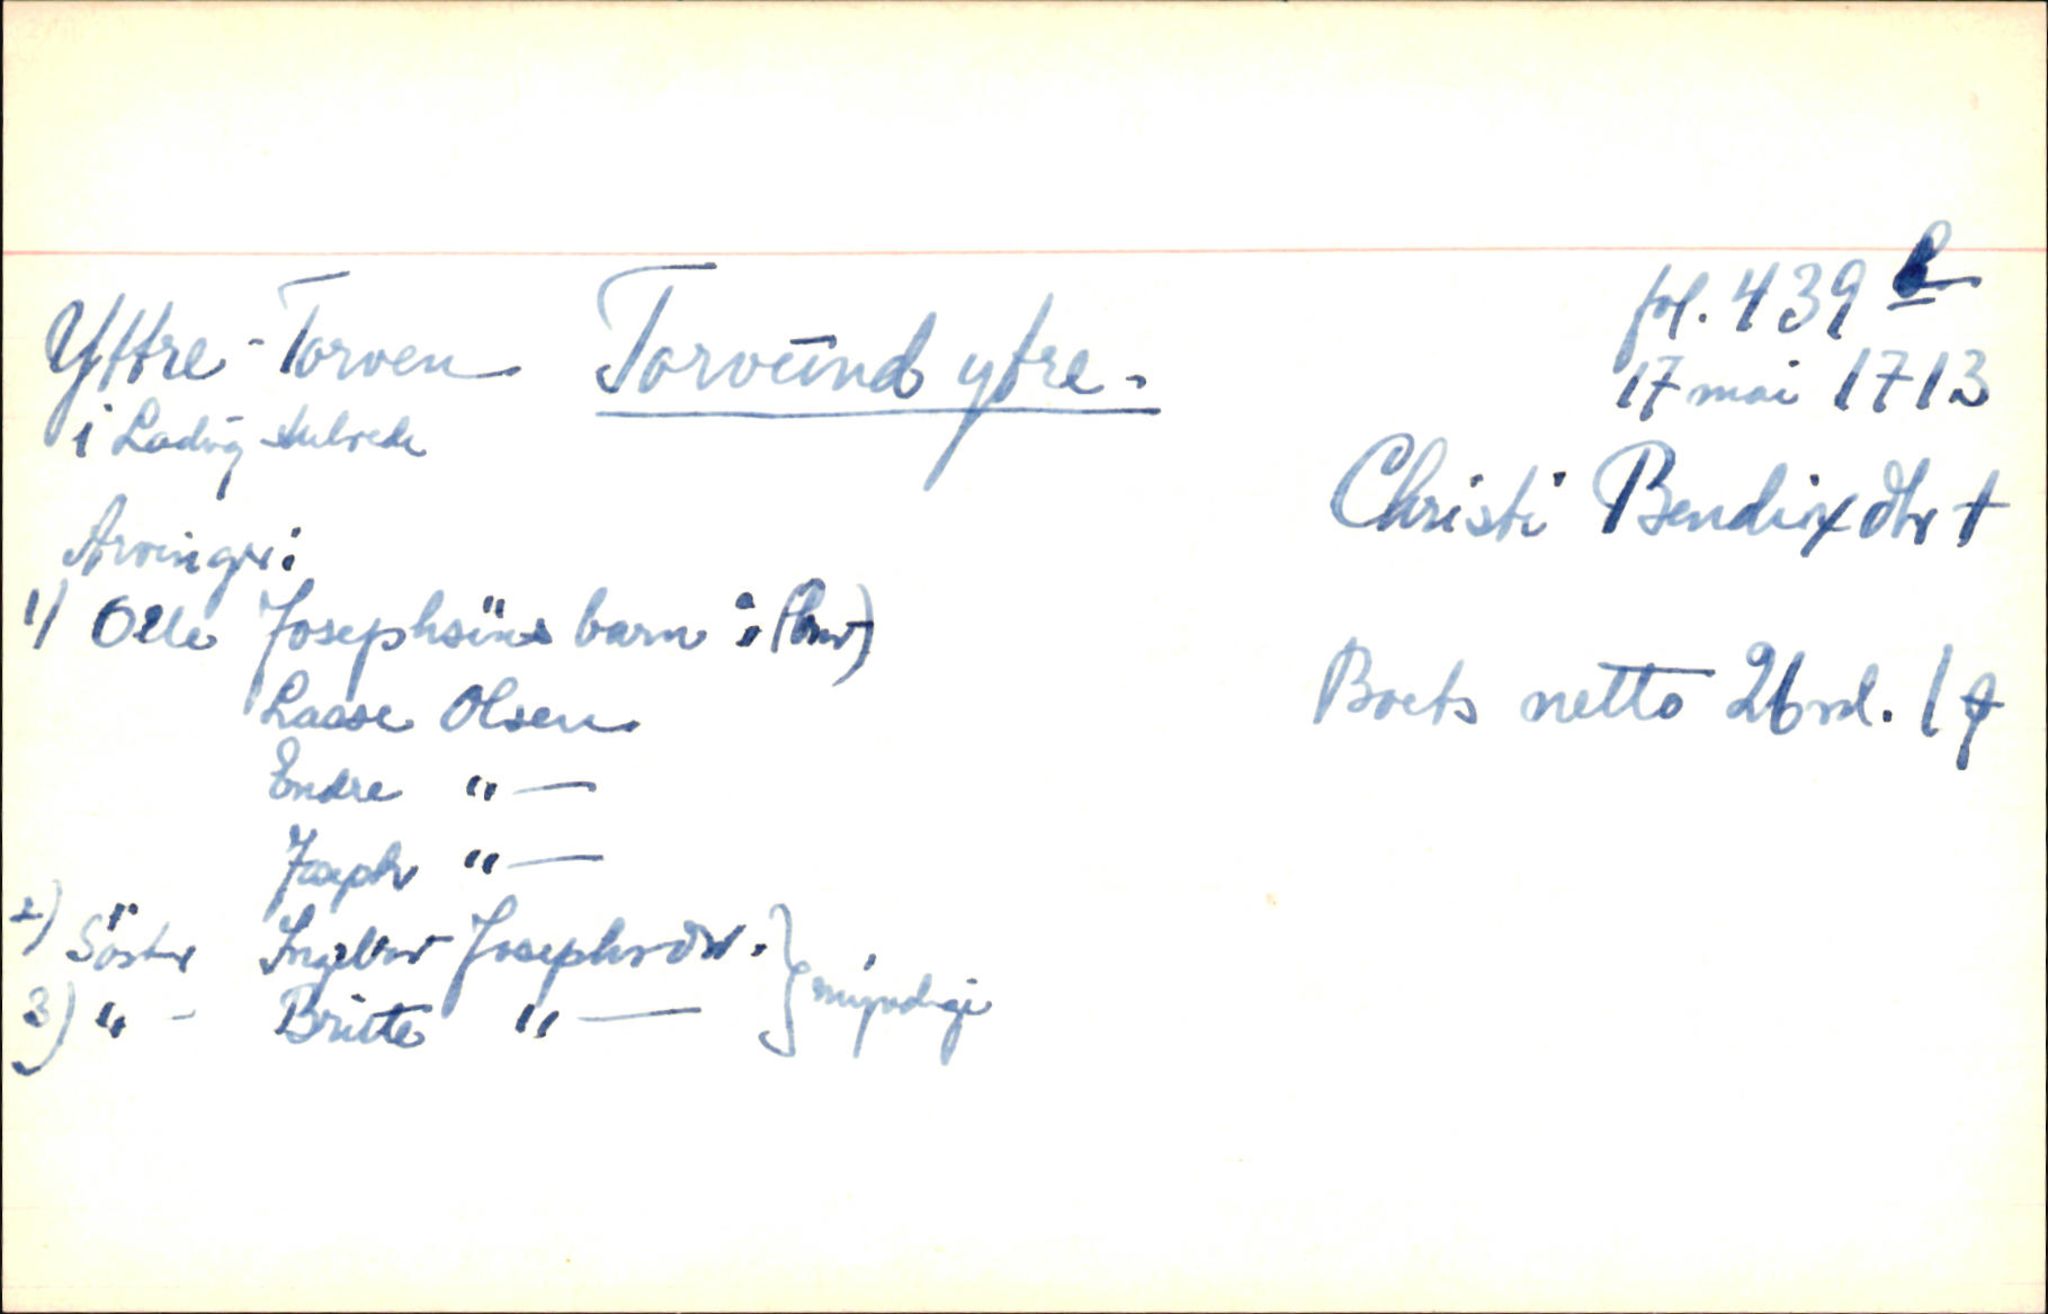 fol. 439 b
Yttre-Torven Torvund ytre.
17 mai 1713
i Ladvig
Christi Bendixdtr †
Arvinger:
1/ Olle Josephsöns barn : (bror)
Boets netto 26 rd. 1 ƒ
Lasse Olsen
Endre "—
Joseph "—
2) Söster Ingebor Josephsdtr. } myndige
3) " - Britte "—